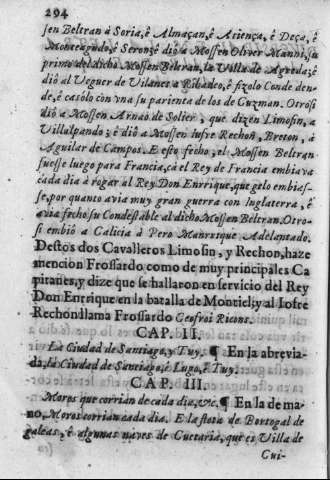 294
sen Beltran à Soria, è Almaçan, è Atiença, è Deça, è
Monteagudo, è Seron: è diò a Mossen Oliver Manni, su
primo del dicho Mossen Beltran, la Villa de Agreda: è
diò al Veguer de Vilanes a Ribadeo, è fizolo Conde den-
de, è casòlo con vna su parienta de los de Guzman. Otrosi
diò a Mossen Arnao de Solier, que dizen Limosin, a
Villalpando; è diò a Mossen Iufre Rechon, Breton, à
Aguilar de Campos. E esto fecho, el Mossen Beltran
fuesse luego para Francia, cà el Rey de Francia embiava
cada dia à rogar al Rey Don Enrrique, que gelo embias-
se, por quanto avia muy gran guerra con Inglaterra, è
avia fecho su Condestable al dicho Mossen Beltran. Otro-
si embiò a Galicia à Pero Manrrique Adelantado.
Destos dos Cavalleros Limosin, y Rechon, haze
mencion Frossardo como de muy principales Ca
pitanes, y dize que se hallaron en servicio del Rey
Don Enrrique en la batalla de Montiel; y al Iofre
Rechon llama Frossardo Geofroi Ricons.
CAP. II.
La Ciudad de Santiago, y Tuy. ¶ En la abrevia-
da, la Ciudad de Santiago, è Lugo, è Tuy.
CAP. III.
Moros que corrian de cada dia, &c. ¶ En la de ma-
no, Moros corrian cada dia. E la flota de Portogal de
galeas, è algunas naves de Cuetaria, que es Villa de
Cui-